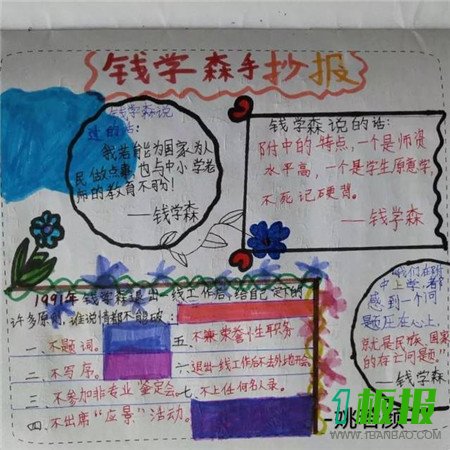 钱学森手抄报
钱学森说
过的话:
我若能为国家为人
民做点事,也与中小学老
师的教育不可分!
——钱学森
钱学森说的话:
附中的特点,一个是师资
水平高,一个是学生愿意学,
不死记硬背。
——钱学森
我们在附
中上学,都
感到一个问
题压在心上,
就是民族、国家
的存亡问题。”
钱学森
1991年钱学森退出一线工作后,给自己定的
许多原则,谁说情都不能破:
一 不题词。
二 不写序。
三 不参加非专业鉴定会。
四 不出席“应景”活动。
五 不兼荣誉性职务
六 退出一线工作后不去外地开会
七 不上任何名人录。
板报
WWW.1BANBAO.COM